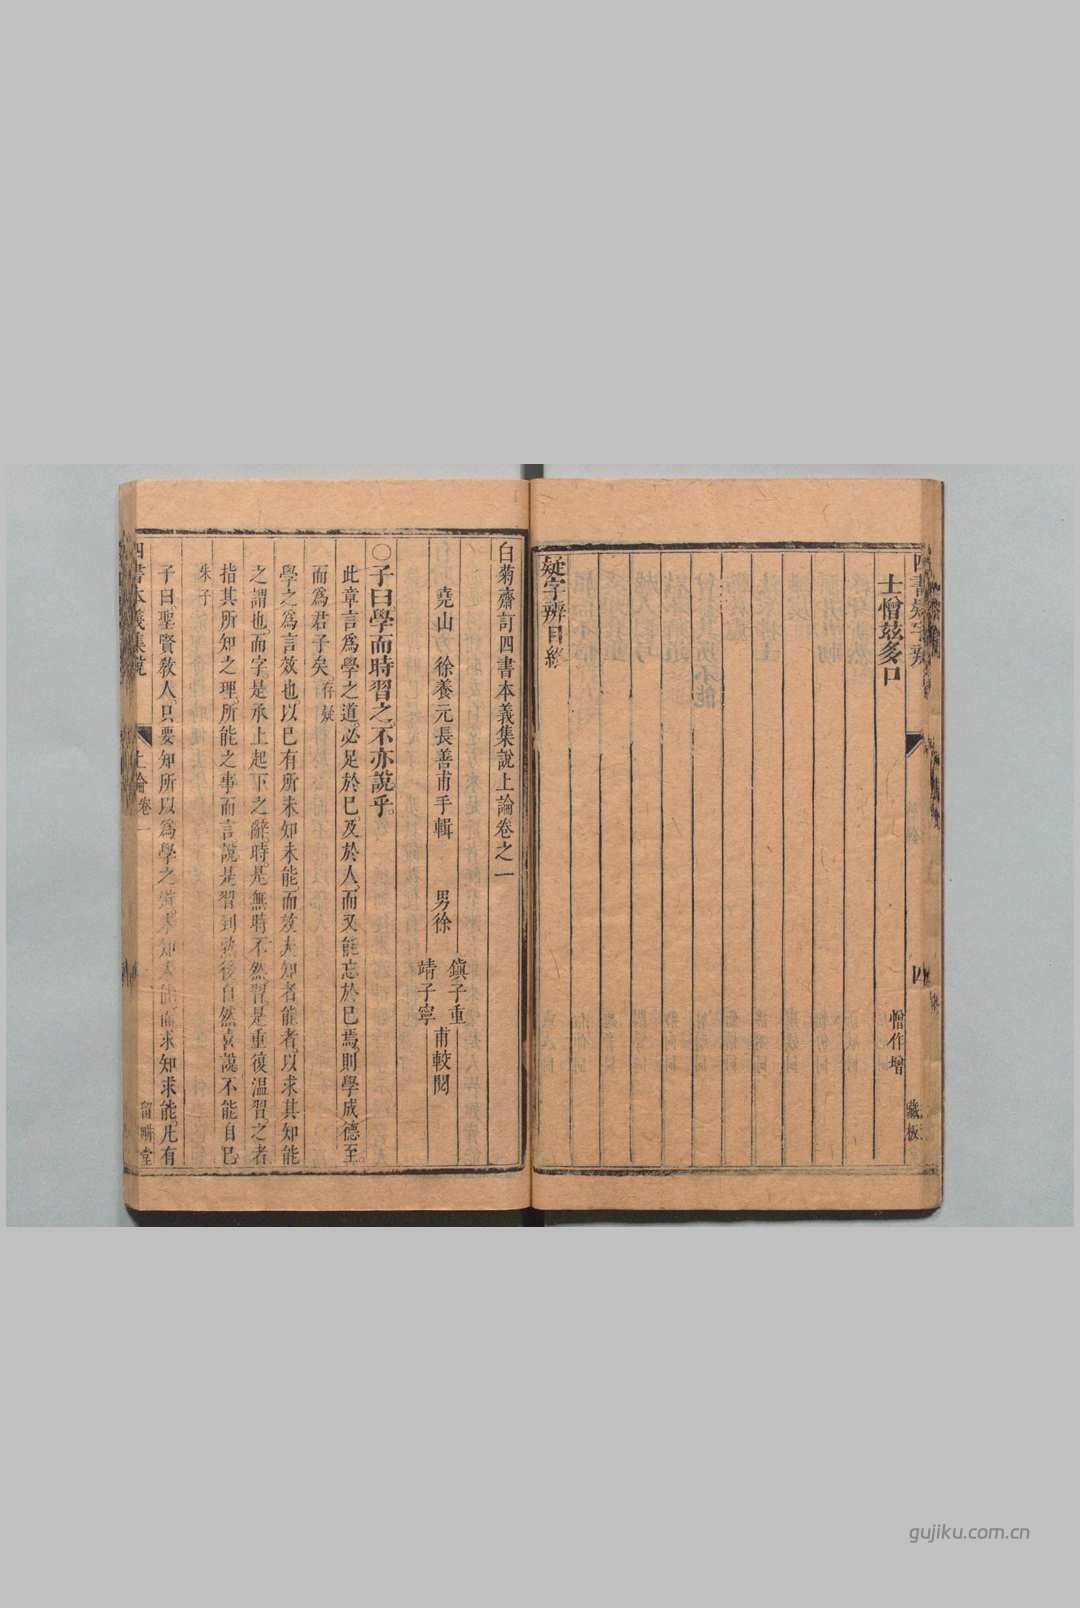 士憎兹多口
憎作增
疑字辨目終
四書疑字辨
四
藏板
白菊齋訂四書本義集說上論卷之一
堯山 徐養元長善甫手輯 男徐
鎮子重
靖子寧
甫較閱
○子曰學而時習之不亦說乎
此章言爲學之道必足於已及於人而又能忘於已焉則學成德至
而爲君子矣 存疑
學之爲言效也以已有所未知未能而效夫知者能者以求其知能
之謂也而字是承上起下之辭時是無時不然習是重復溫習之者
指其所知之理所能之事而言說是習到熟後自然喜說不能自已
朱子
子曰聖賢敎人只要知所以爲學之道未知未能而求知求能凡有
四書本義集說
上論卷一
留畊堂
gujiku.com.cn